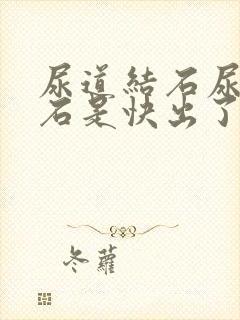 尿道結石尿
石是快出了
冬蘿